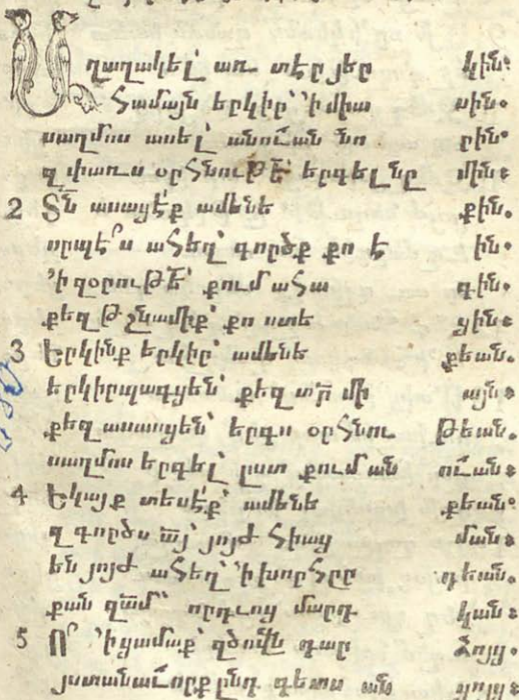 Աղաղակել՝ առ տէր յեր կին։
Համայն երկիր՝ ՚ի միա սին.
սաղմոս ասել՝ անուան նո րին՝
զփառս օրհնութե՝ երգել նը մին։
2 Տն ասացէ՛ք ամենե քին.
որպէ՞ս ահեղ՝ գործք քո է ին՝
՚ի զօրութե՝ քում ահա գին.
քեզ թշնամիք՝ քո ստե ցին։
3 Երկինք երկիր՝ ամենե քեան.
երկիրպագցեն՝ քեզ տր մի այն։
քեզ ասասցեն՝ երգս օրհնու թեան.
սաղմոս երգել՝ ըստ քում ան ուան։
4 Եկայք տեսէ՛ք՝ ամենե քեան՝
զգործս այ՝ յոյժ հիաց ման։
են յոյժ ահեղ՝ ՚ի խորհրը դեան.
քան զամ՝ որդւոց մարդ կան։
5 Ո՞ ՚ի ցամաք՝ զծովն դար ձոյց.
յստանաւորք ընդ գետս ան ցոյց։